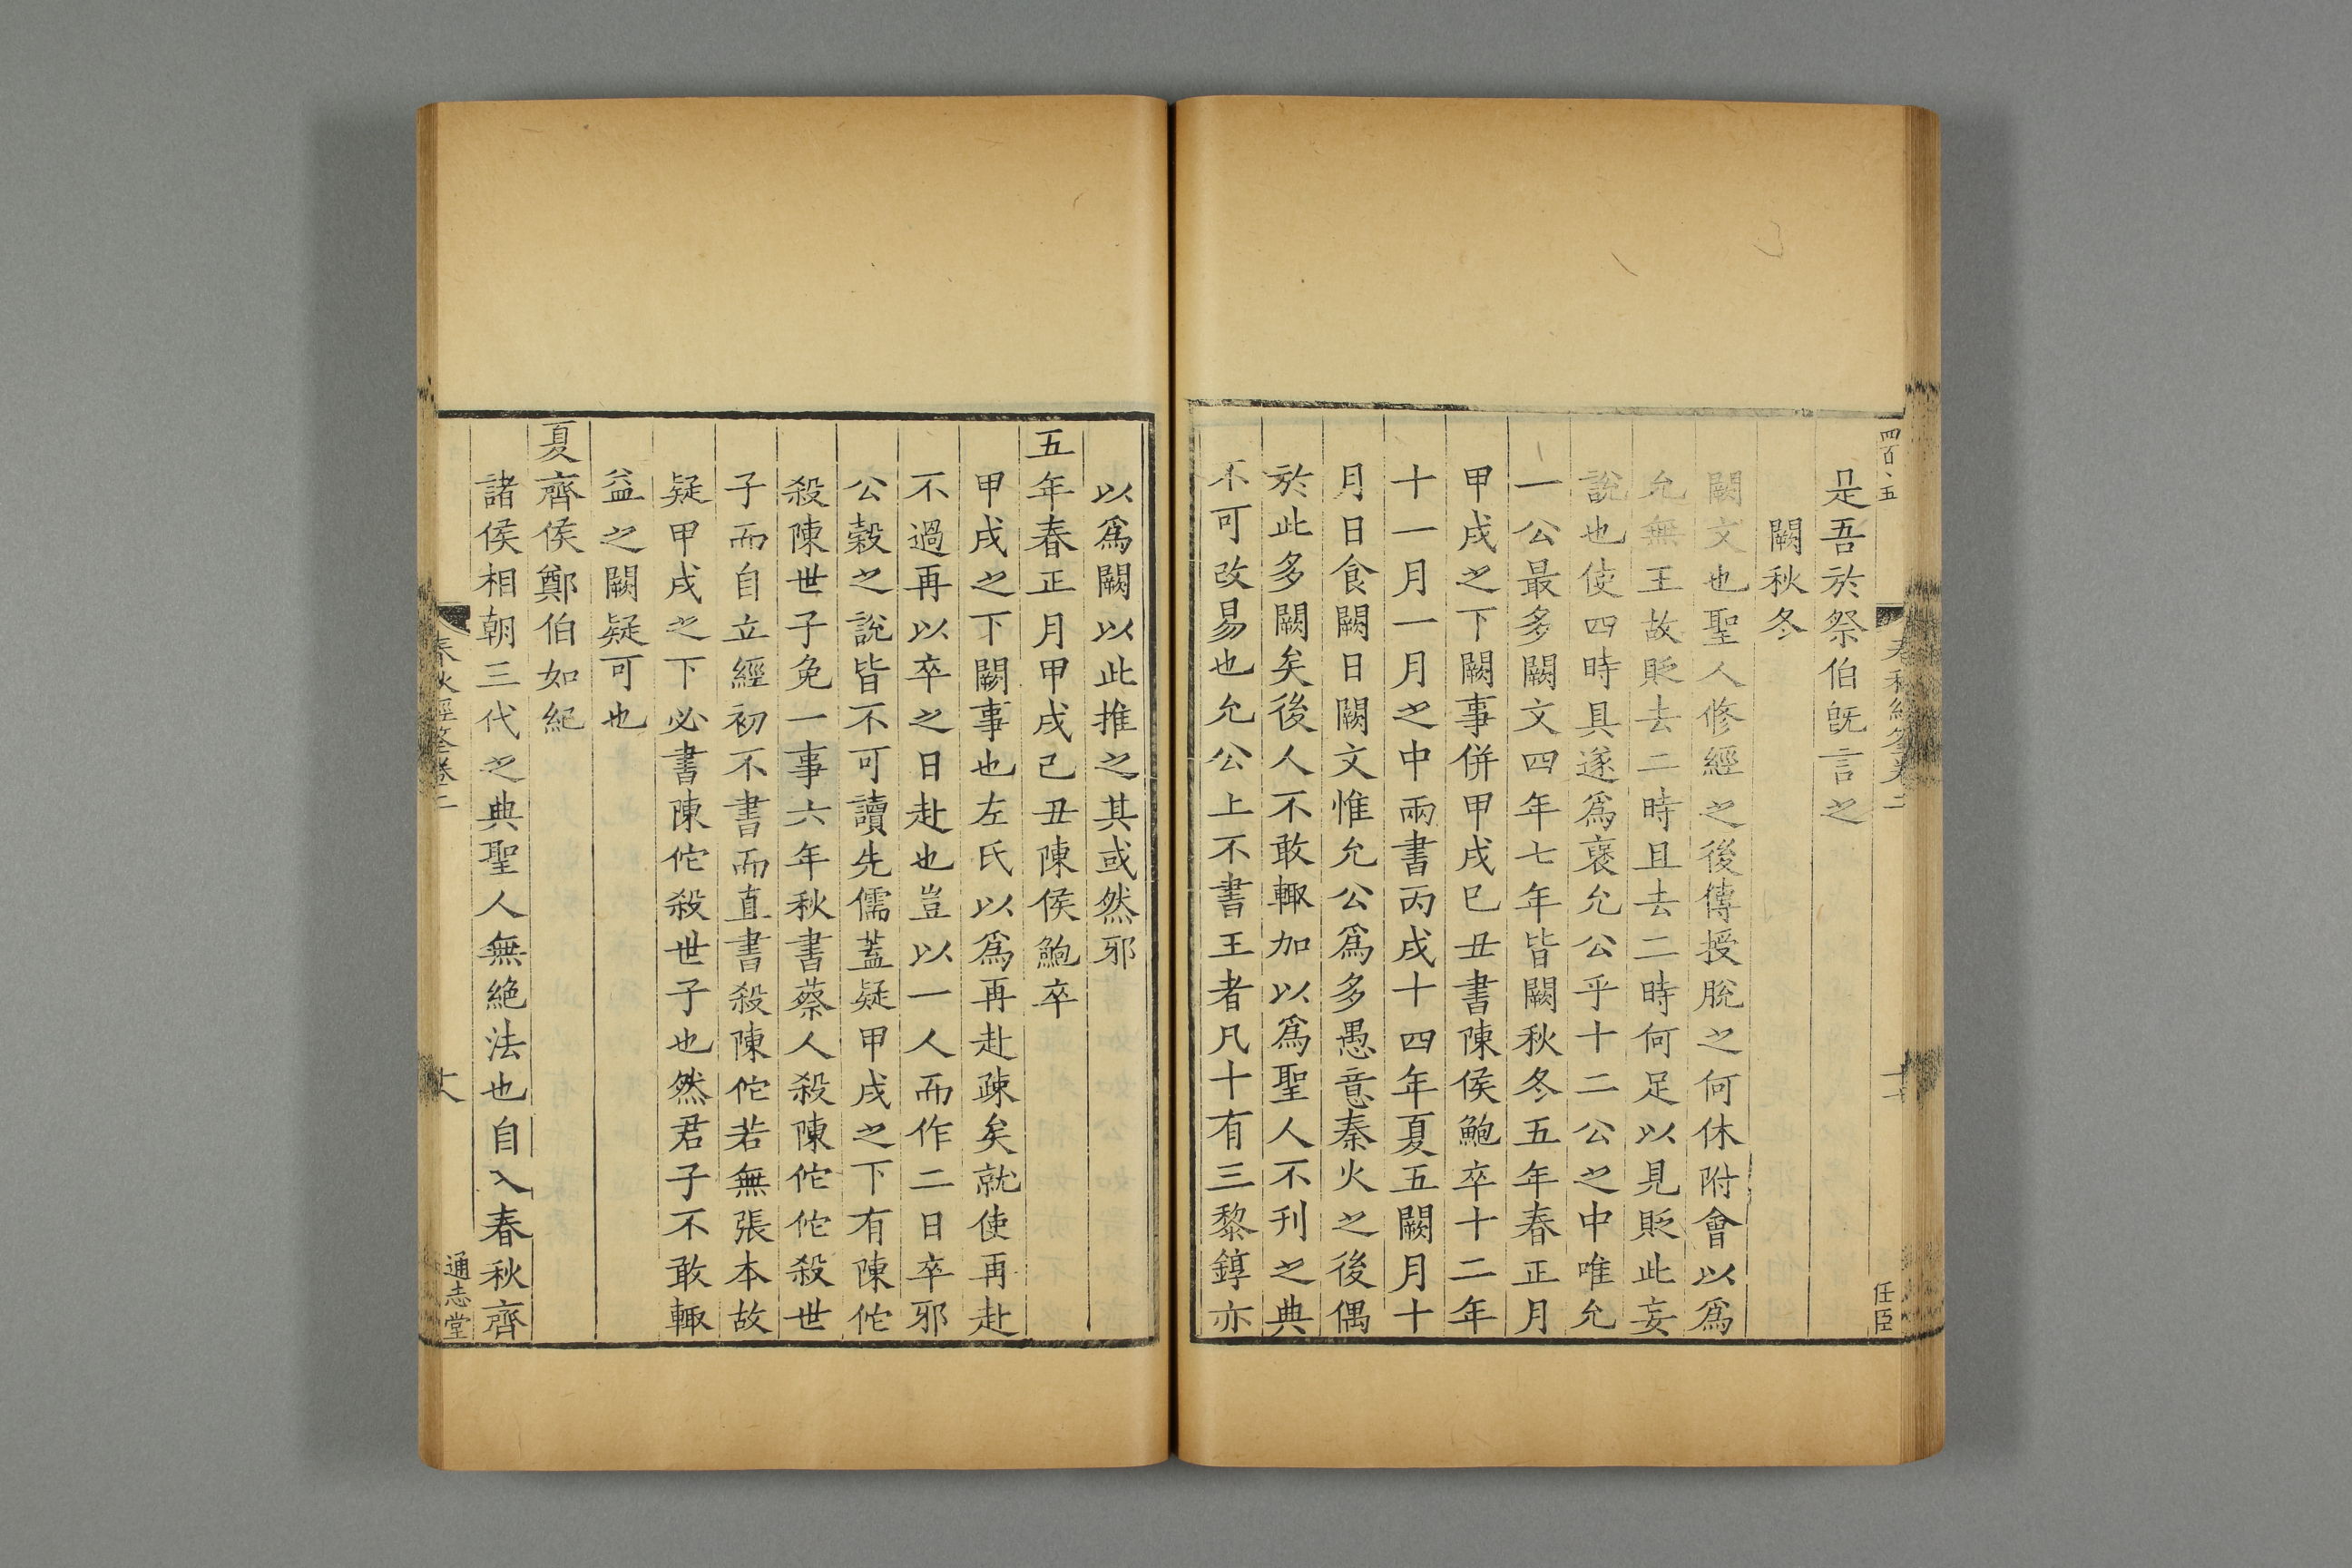 四百、五
任臣
是吾於祭伯旣言之
闕秋冬
闕文也聖人修經之後傳授脫之何休附會以爲
允無王故貶去二時且去二時何足以見貶此妄
說也使四時具遂爲襃允公乎十二公之中唯允
一公最多闕文四年七年皆闕秋冬五年春正月
甲戌之下闕事併甲戌巳丑書陳侯鮑卒十二年
十一月一月之中兩書丙戌十四年夏五闕月十
月日食闕日闕文惟允公爲多愚意秦火之後偶
於此多闕矣後人不敢輙加以爲聖人不刊之典
不可改易也允公上不書王者凡十有三黎錞亦
以爲闕以此推之其或然邪
五年春正月甲戌己丑陳侯鮑卒
甲戌之下闕事也左氏以爲再赴疎矣就使再赴
不過再以卒之日赴也豈以一人而作二日卒邪
公穀之說皆不可讀先儒蓋疑甲戌之下有陳佗
殺陳世子免一事六年秋書蔡人殺陳佗佗殺世
子而自立經初不書而直書殺陳佗若無張本故
疑甲戌之下必書陳佗殺世子也然君子不敢輙
益之闕疑可也
夏齊侯鄭伯如紀
諸侯相朝三代之典聖人無絶法也自入春秋齊
春秋經筌卷二
通志堂